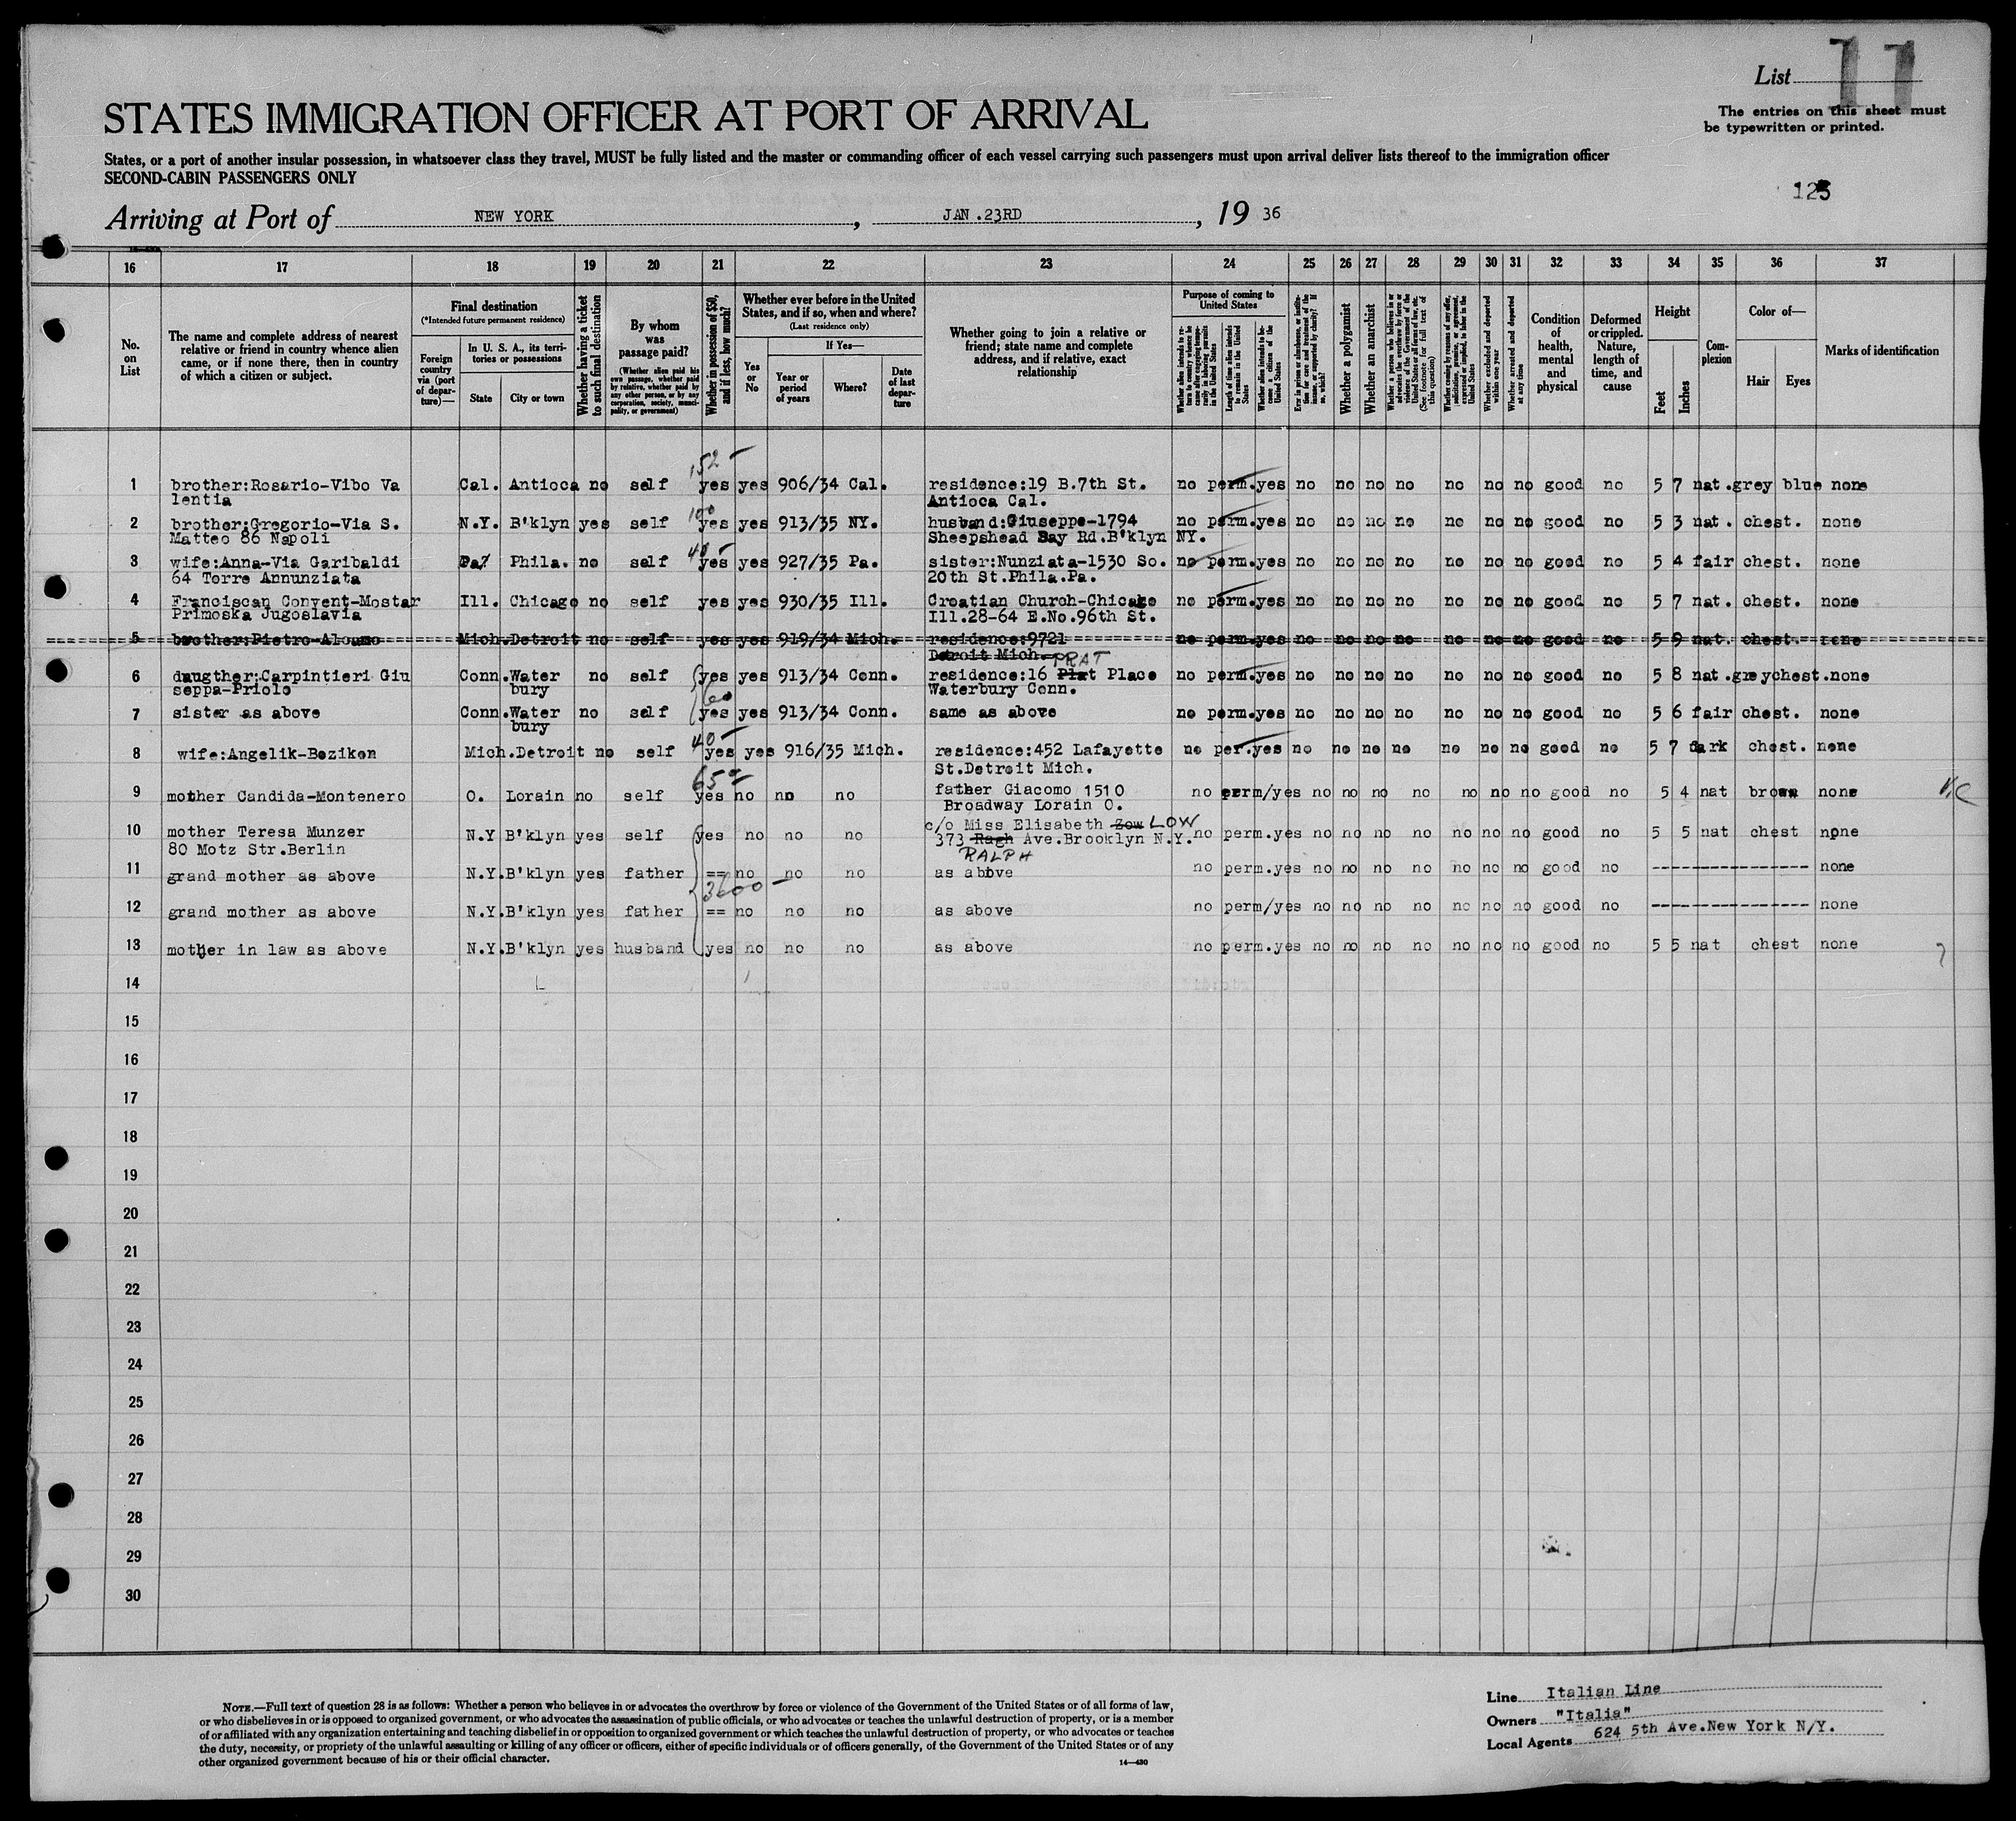 List 11
The entries on this sheet must
be typewritten or printed.
STATES IMMIGRATION OFFICER AT PORT OF ARRIVAL
States, or a port of another insular possession, in whatsoever class they travel, MUST be fully listed and the master or commanding officer of each vessel carrying such passengers must upon arrival deliver lists thereof to the immigration officer
SECOND-CABIN PASSENGERS ONLY
123
Arriving at Port of NEW YORK, JAN.23RD, 19 36
16 17 18 19 20 21 22 23 24 25 26 27 28 29 30 31 32 33 34 35 36 37
No.
on
List
The name and complete address of nearest
relative or friend in country whence alien
came, or if none there, then in country
of which a citizen or subject.
Final destination
(*Intended future permanent residence)
Foreign
country
via (port
of depar-
ture)—
In U. S. A., its terri-
tories or possessions
State City or town
Whether having a ticket
to such final destination
By whom
was
passage paid?
(Whether alien paid his
own passage, whether paid
by relative, whether paid by
any other person, or by any
corporation, society, munici-
pality, or government)
Whether in possession of $50,
and if less, how much?
Whether ever before in the United
States, and if so, when and where?
(Last residence only)
Yes
or
No
If Yes—
Year or
period
of years
Where?
Date
of last
depar-
ture
Whether going to join a relative or
friend; state name and complete
address, and if relative, exact
relationship
Purpose of coming to
United States
Whether alien intends to re-
turn to country whence he
came after engaging tempo-
rarily in laboring pursuits
in the United States
Length of time alien intends
to remain in the United
States
Whether alien intends to be-
come a citizen of the
United States
Ever in prison or almshouse, or institu-
tion for care and treatment of the
insane, or supported by charity? If
so, which?
Whether a polygamist
Whether an anarchist
Whether a person who believes in or
advocates the overthrow by force or
violence of the Government of the
United States or all forms of law, etc.
(See footnote for full text of
this question)
Whether coming by reason of any offer,
solicitation, promise, or agreement,
expressed or implied, to labor in the
United States
Whether excluded and deported
within one year
Whether arrested and deported
at any time
Condition
of
health,
mental
and
physical
Deformed
or crippled.
Nature,
length of
time, and
cause
Height
Feet Inches
Com-
plexion
Color of—
Hair Eyes
Marks of identification
152 -
1 brother:Rosario-Vibo Va Cal. Antioca no self yes yes 906/34 Cal. residence:19 B.7th St. no perm.yes no no no no no no no good no 5 7 nat.grey blue none
lentia Antioca Cal.
100
2 brother:Gregorio-Via S. N.Y. B'klyn yes self yes yes 913/35 NY. husband:Giuseppe-1794 no perm.yes no no no no no no no good no 5 3 nat. chest. none
Matteo 86 Napoli Sheepshead Bay Rd.B'klyn NY.
40 -
3 wife:Anna-Via Garibaldi Pa. Phila. no self yes yes 927/35 Pa. sister:Nunziata-1530 So. no perm.yes no no no no no no no good no 5 4 fair chest. none
64 Torre Annunziata 20th St.Phila.Pa.
4 Franciscan Convent-Mostar Ill. Chicago no self yes yes 930/35 Ill. Croatian Church-Chicago no perm.yes no no no no no no no good no 5 7 nat. chest. none
Primoska Jugoslavia Ill.28-64 E.No.96th St.
5 brother:Pietro-Alcamo Mich.Detroit no self yes yes 919/34 Mich. residence:9721 no perm.yes no no no no no no no good no 5 9 nat. chest. none
Detroit Mich.
PRAT
6 daugther:Carpintieri Giu Conn.Water no self yes yes 913/34 Conn. residence:16 Plat Place no perm.yes no no no no no no no good no 5 8 nat.greychest.none
seppa-Priolo bury Waterbury Conn.
7 sister as above Conn.Water no self yes yes 913/34 Conn. same as above no perm.yes no no no no no no no good no 5 6 fair chest. none
bury
40 -
8 wife:Angelik-Bozikon Mich.Detroit no self yes yes 916/35 Mich. residence:452 Lafayette no per.yes no no no no no no no good no 5 7 dark chest. none
St.Detroit Mich.
65
9 mother Candida-Montenero O. Lorain no self yes no no no father Giacomo 1510 no perm/yes no no no no no no no good no 5 4 nat brown none
Broadway Lorain O.
c/o Miss Elisabeth Zow LOW
10 mother Teresa Munzer N.Y B'klyn yes self yes no no no 373 Ragh Ave.Brooklyn N.Y. no perm.yes no no no no no no no good no 5 5 nat chest none
80 Motz Str.Berlin RALPH
11 grand mother as above N.Y.B'klyn yes father == no no no as above no perm.yes no no no no no no no good no ---------------- none
3600 -
12 grand mother as above N.Y.B'klyn yes father == no no no as above no perm/yes no no no no no no no good no ---------------- none
13 mother in law as above N.Y.B'klyn yes husband yes no no no as above no perm.yes no no no no no no no good no 5 5 nat chest none
14
15
16
17
18
19
20
21
22
23
24
25
26
27
28
29
30
NOTE.—Full text of question 28 is as follows: Whether a person who believes in or advocates the overthrow by force or violence of the Government of the United States or of all forms of law,
or who disbelieves in or is opposed to organized government, or who advocates the assassination of public officials, or who advocates or teaches the unlawful destruction of property, or is a member
of or affiliated with any organization entertaining and teaching disbelief in or opposition to organized government or which teaches the unlawful destruction of property, or who advocates or teaches
the duty, necessity, or propriety of the unlawful assaulting or killing of any officer or officers, either of specific individuals or of officers generally, of the Government of the United States or of any
other organized government because of his or their official character.
14—430
Line Italian Line
Owners "Italia"
Local Agents 624 5th Ave.New York N/Y.